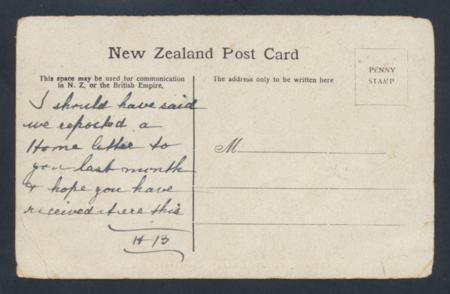 New Zealand Post Card
This space may be used for communication
in N. Z. or the British Empire,
The address only to be written here
PENNY
STAMP
I should have said
we reposted a
Home letter to
you last month
& hope you have
received it ere this
H B
M